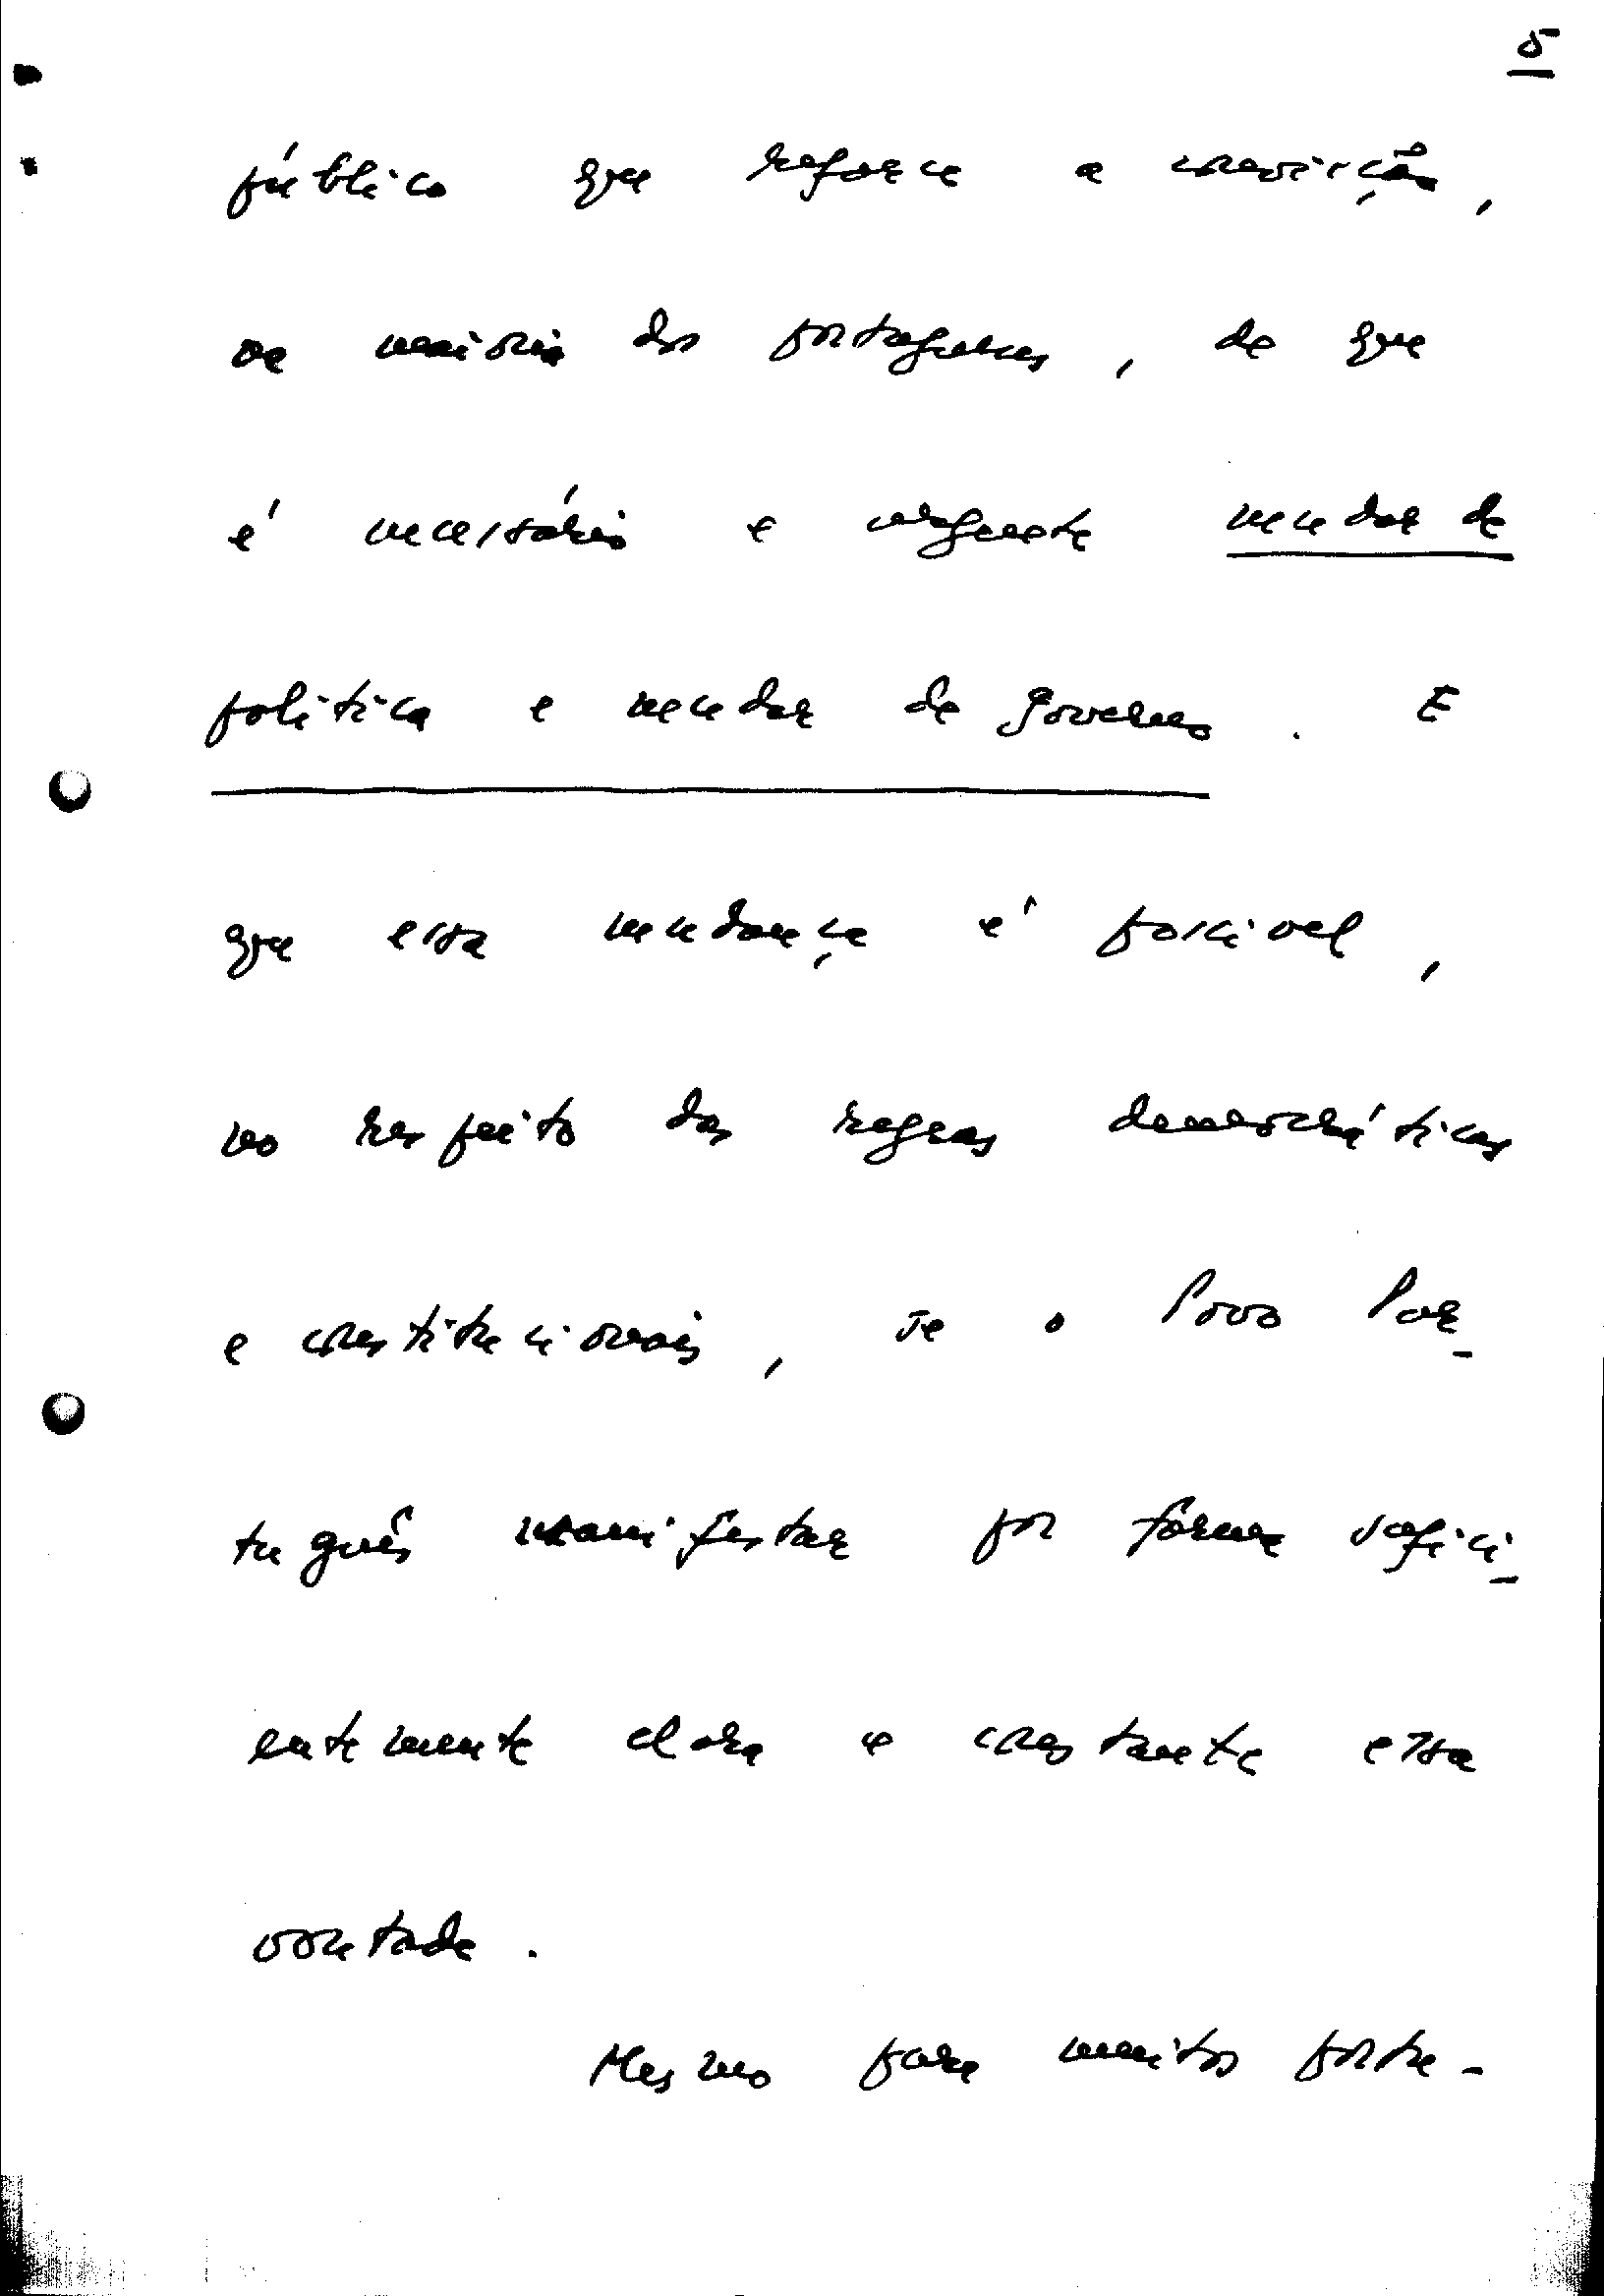 5
pública que reforce a convicção,
na maioria dos portugueses, de que
é necessário e urgente mudar de
política e mudar de governo. E
que essa mudança é possível,
no respeito das regras democráticas
e constitucionais, se o Povo Por-
tuguês manifestar por forma sufici-
entemente clara e constante essa
vontade.
Mesmo para muitos portu-